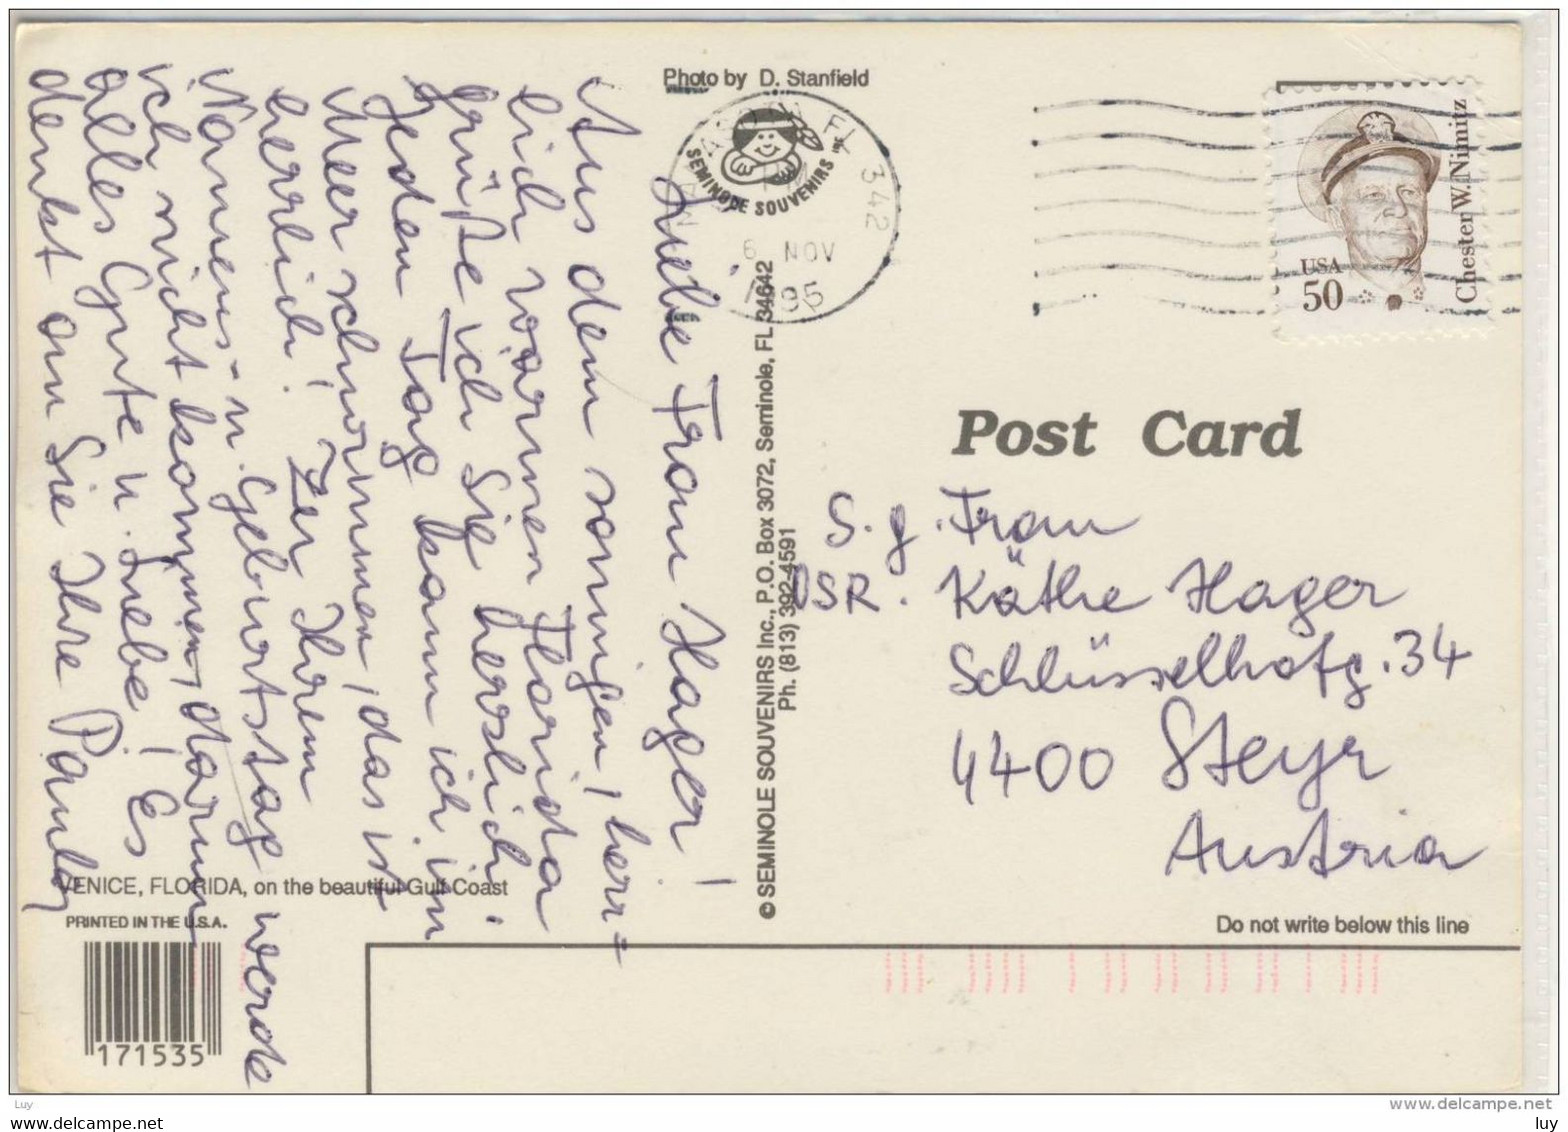 Photo by D. Stanfield
SEMINOLE SOUVENIRS INC
FL 342
6 NOV
95
USA
50
Chester W. Nimitz
Liebe Frau Hager!
Aus dem sonnigen, herr=
lich warmen Florida
grüße ich Sie herzlich.
Jeden Tag kann ich im
Meer schwimmen, das ist
herrlich! Zu Ihrem
Namens- u. Geburtstag werde
ich nicht kommen, darum
alles Gute u. Liebe! Es
denkt an Sie Ihre
© SEMINOLE SOUVENIRS Inc., P.O. Box 3072, Seminole, FL 34642
Ph. (813) 392-4591
Post Card
S. g. Frau
OSR. Käthe Hager
Schlüsselhofg. 34
4400 Steyr
Austria
VENICE, FLORIDA, on the beautiful Gulf Coast
PRINTED IN THE U.S.A.
Do not write below this line
171535
Luy
www.delcampe.net
luy www.delcampe.net luy